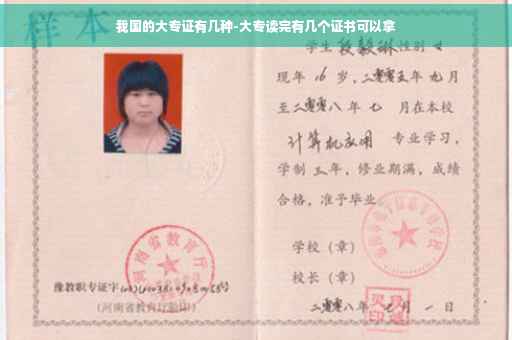 我国的大专证有几种-大专读完有几个证书可以拿
样本
学生 段毅琳 性别 女
现年 16 岁，二零零五年 九 月
至二零零八年 七 月在本校
计算机应用 专业学习，
学制 三 年，修业期满，成绩
合格，准予毕业
学校（章）
校长（章）
二零零八年 月 一 日
河南省教育厅
豫教职专证字
（河南省教育厅验印）